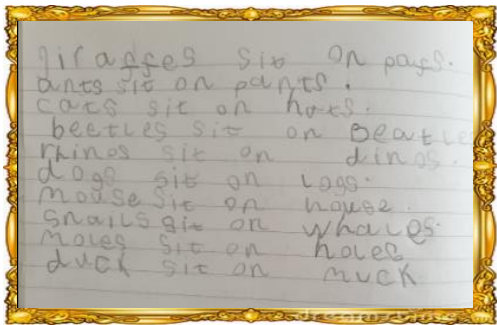 giraffes sit on
ants sit on pants.
cats sit on hats.
beetles sit on Beatle
rhinos sit on dinos.
dogs sit on logs.
mouse sit on house.
snails sit on whales.
moles sit on holes
duck sit on muck